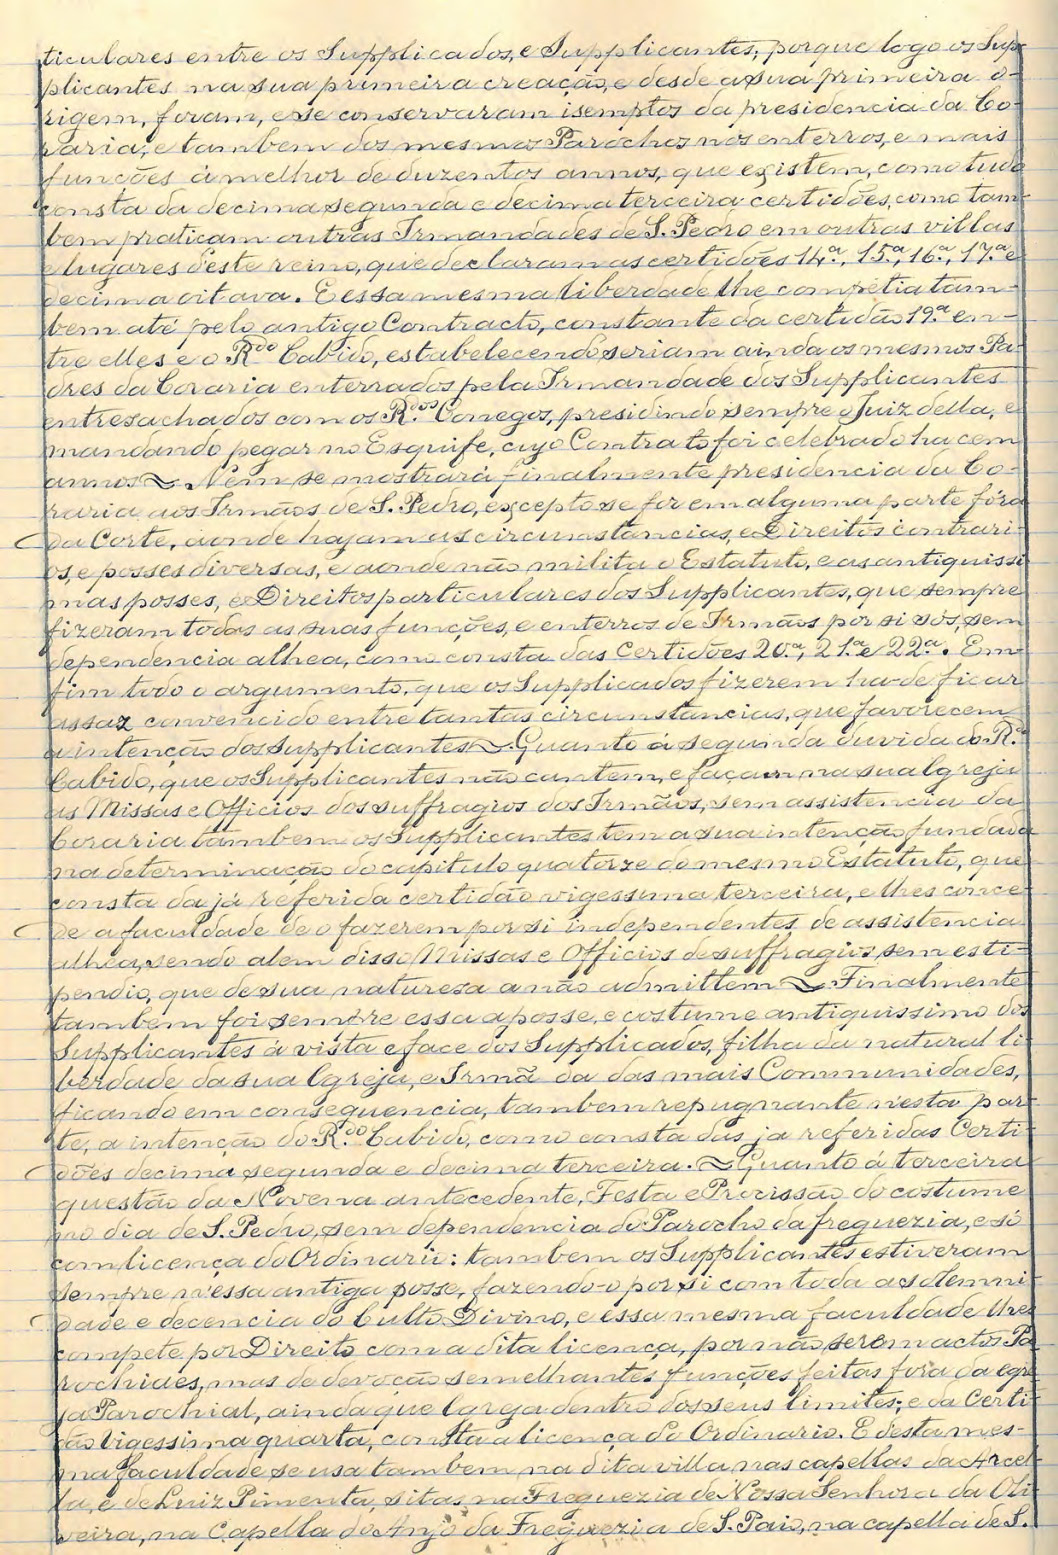 ticulares entre os Supplicados, e Supplicantes; porque logo os Sup-
plicantes na sua primeira creação, e desde a sua primeira o-
rigem, foram, e se conservaram isemptos da presidencia da Co-
raria, e tambem dos mesmos Parochos nos enterros, e mais
funcções á melhor de duzentos annos, que existem, como tudo
consta da decima segunda e decima terceira certidões, como tam-
bem praticam outras Irmandades de S. Pedro em outras villas
e lugares d'este reino, que declaram as certidões 14.ª, 15.ª, 16.ª, 17.ª e
decima oitava. E essa mesma liberdade lhe competia tam-
bem até pelo antigo Contracto, constante da certidão 19.ª en-
tre elles e o R.do Cabido, estabelecendo seriam ainda os mesmos Pa-
dres da Coraria enterrados pela Irmandade dos Supplicantes
entresachados com os R.dos Conegos, presidindo sempre o Juiz della, e
mandando pegar no Esquife, cujo Contrato foi celebrado ha cem
annos ~ Nem se mostrará finalmente presidencia da Co-
raria aos Irmãos de S. Pedro, excepto se for em alguma parte fóra
da Corte, aonde hajam as circumstancias, e Direitos contrari-
os, e posses diversas, e aonde não milita o Estatuto, e as antiquissi
mas posses, e Direitos particulares dos Supplicantes, que sempre
fizeram todas as suas funcções, e enterros de Irmãos por si sós, sem
dependencia alhea, como consta das Certidões 20.ª, 21.ª e 22.ª. Em
fim todo o argumento, que os Supplicados fizerem ha-de ficar
assaz convencido entre tantas circumstancias, que favorecem
a intenção dos Supplicantes ~ Quanto á segunda duvida do R.do
Cabido, que os Supplicantes não cantem, e façam na sua Igreja
as Missas e Officios dos suffragios dos Irmãos, sem assistencia da
Coraria tambem os Supplicantes tem a sua intenção fundada
na determinação do capitulo quatorze do mesmo Estatuto, que
consta da já referida certidão vigessima terceira, e lhes conce-
de a faculdade de o fazerem por si independentes de assistencia
alhea, sendo alem disso Missas e Officios de suffragios sem esti-
pendio, que de sua natureza a não admittem ~ Finalmente
tambem foi sempre essa a posse, e costume antiquissimo dos
Supplicantes á vista e face dos Supplicados, filha da natural li-
berdade da sua Igreja, e Irmã da das mais Communidades,
ficando em consequencia, tambem repugnante n'esta par-
te, a intenção do R.do Cabido, como consta das ja referidas Certi-
dões decima segunda e decima terceira. ~ Quanto á terceira
questão da Novena antecedente, Festa e Procissão do costume
no dia de S. Pedro, sem dependencia do Parocho da freguezia, e só
com licença do Ordinario: tambem os Supplicantes estiveram
sempre n'essa antiga posse, fazendo-o por si com toda a solemni-
dade e decencia do Culto Divino, e essa mesma faculdade lhes
compete por Direito com a dita licença, por não serem actos Pa
rochiaes, mas de devoção semelhantes funcções feitas fora da egre
ja Parochial, ainda que larga dentro dos seus limites; e da Certi-
dão vigessima quarta, consta a licença do Ordinario. E desta mes-
ma faculdade se usa tambem na dita villa nas capellas da Arcel-
la, e de Luiz Pimenta, sitas na Freguezia de Nossa Senhora da Oli-
veira, na Capella do Anjo da Freguezia de S. Paio, na capella de S.